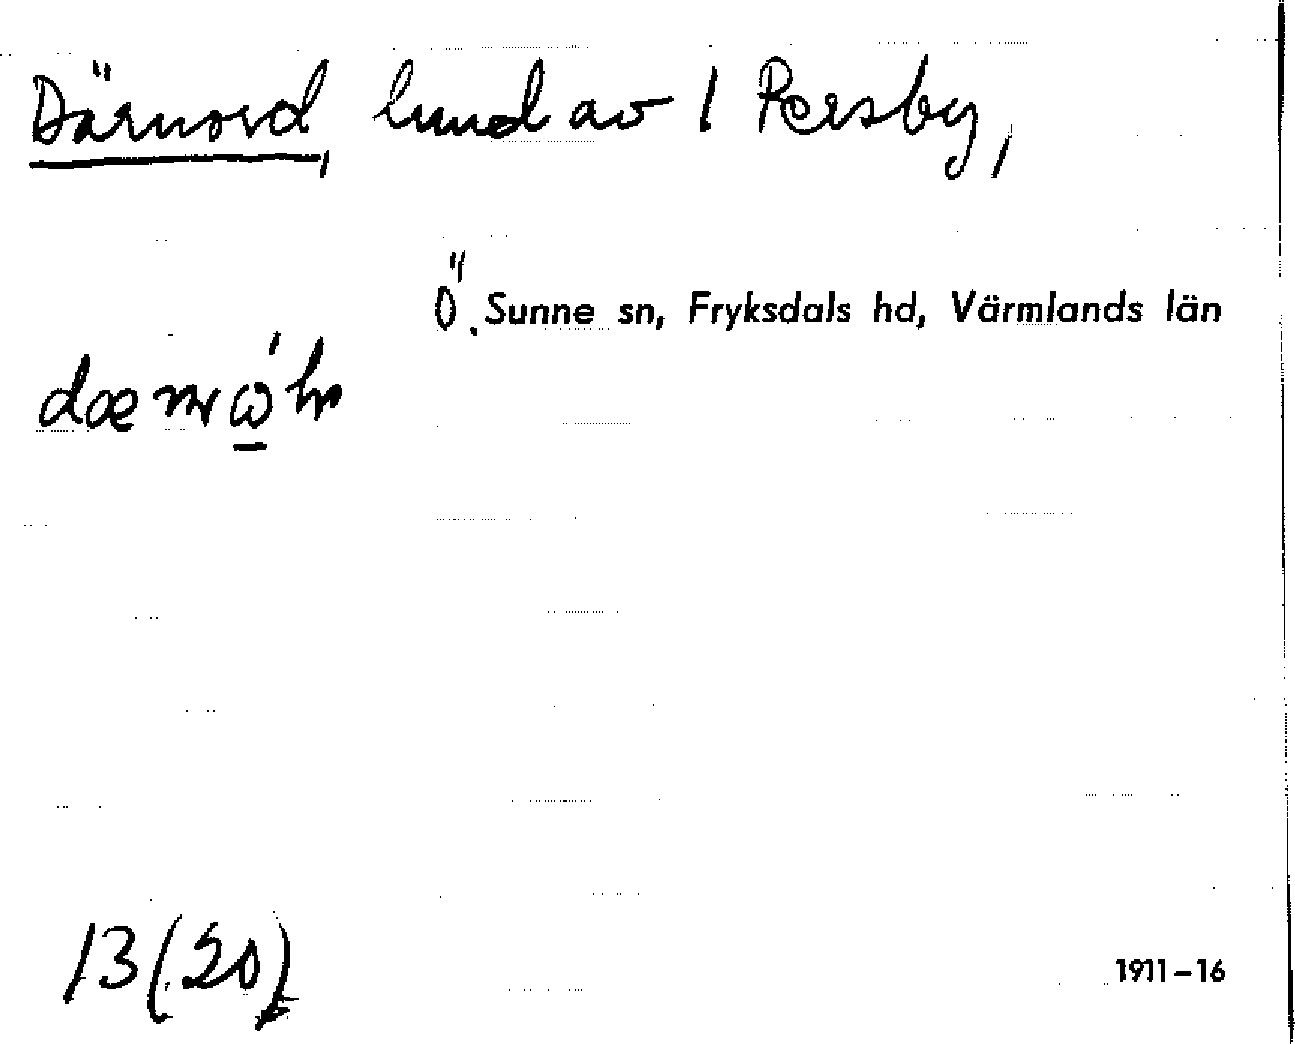 Därnord, hmd av 1 Persby,
Ö. Sunne sn, Fryksdals hd, Värmlands län
13(20)
1911-16